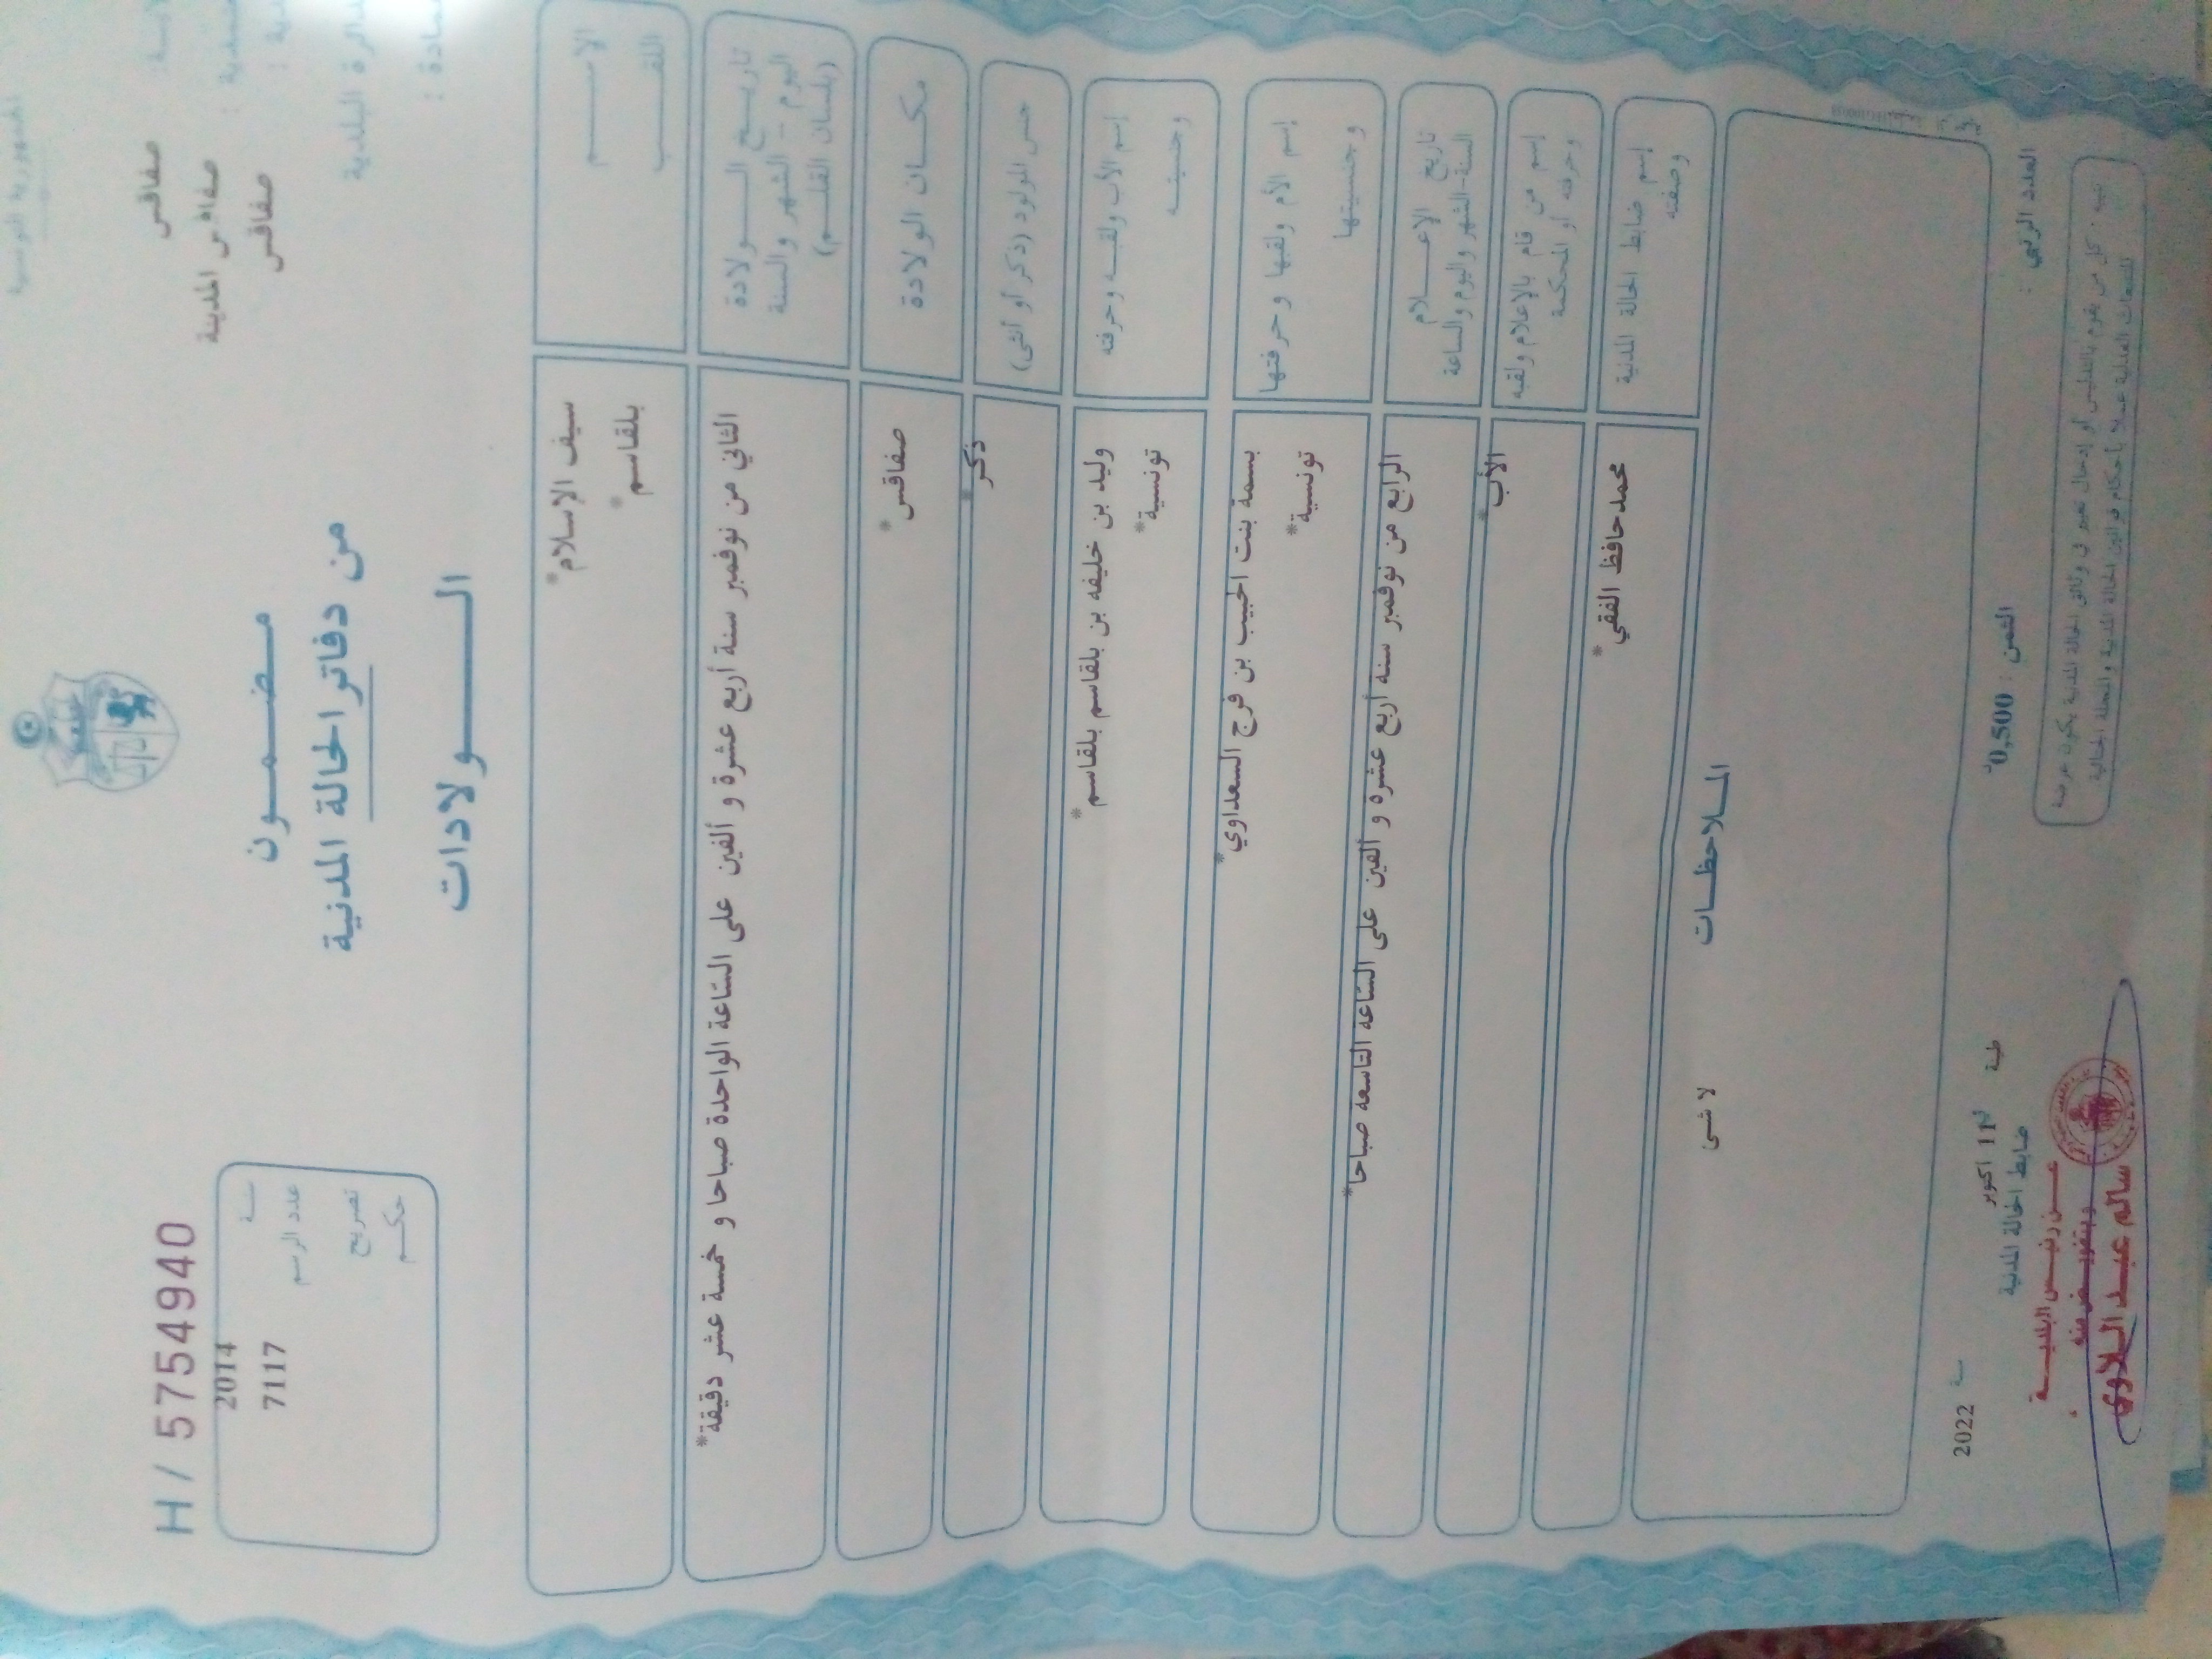 الجمهورية التونسية
صفاقس
صفاقس المدينة
صفاقس
الدائرة البلدية
H / 5754940
سنة 2014
عدد الرسم 7117
تصريح
حكم
مضمون
من دفاتر الحالة المدنية
الولادات
الاسم سيف الإسلام*
اللقب بلقاسم*
تاريخ الولادة
اليوم - الشهر والسنة
(بلسان القلم)
الثاني من نوفمبر سنة أربع عشرة و ألفين على السّاعة الواحدة صباحا و خمسة عشر دقيقة*
مكان الولادة صفاقس*
جنس المولود (ذكر أو أنثى) ذكر*
إسم الأب ولقبه وحرفته وليد بن خليفه بن بلقاسم بلقاسم*
وجنسيته تونسية*
إسم الأم ولقبها وحرفتها بسمة بنت الحبيب بن فرج السعداوي*
وجنسيتها تونسية*
تاريخ الإعلام
السنة-الشهر واليوم والساعة
الرابع من نوفمبر سنة أربع عشرة و ألفين على السّاعة التّاسعة صباحا*
إسم من قام بالإعلام ولقبه
وحرفته أو المحكمة
الأب*
إسم ضابط الحالة المدنية
وصفته
محمد حافظ الفقي*
الملاحظات
لا شئ
العدد الرتبي :
الثمن : 0,500د
طينة في 11 أكتوبر سنة 2022
ضابط الحالة المدنية
عن رئيس البلدية
وبتفويض منه
سالم عبد الـلاوي
تنبيه : كل من يقوم بالتدليس أو إدخال تغيير في وثائق الحالة المدنية يكون عرضة
للتتبعات العدلية عملا بأحكام قوانين الحالة المدنية والمجلة الجنائية